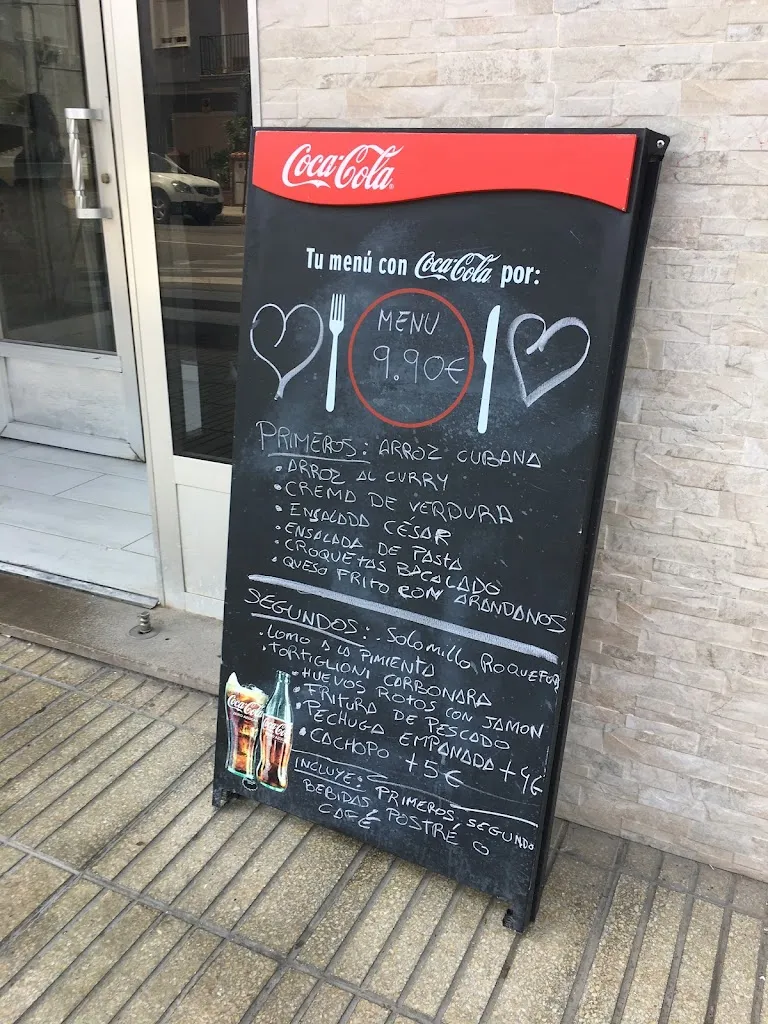 Coca-Cola
Tu menú con Coca-Cola por:
MENU
9.90€
PRIMEROS: ARROZ CUBANA
• ARROZ AL CURRY
• CREMA DE VERDURA
• ENSALADA CESAR
• ENSALADA DE PASTA
• CROQUETAS BACALADO
• QUESO FRITO CON ARANDANOS
SEGUNDOS: • SOLOMILLO ROQUEFORT
• LOMO A LA PIMIENTA
• TORTIGLIONI CARBONARA
• HUEVOS ROTOS CON JAMON
• FRITURA DE PESCADO
• PECHUGA EMPANADA +4€
• CACHOPO +5€
INCLUYE: PRIMEROS, SEGUNDO
BEBIDAS, POSTRE O
CAFÉ
Coca-Cola
Coca-Cola